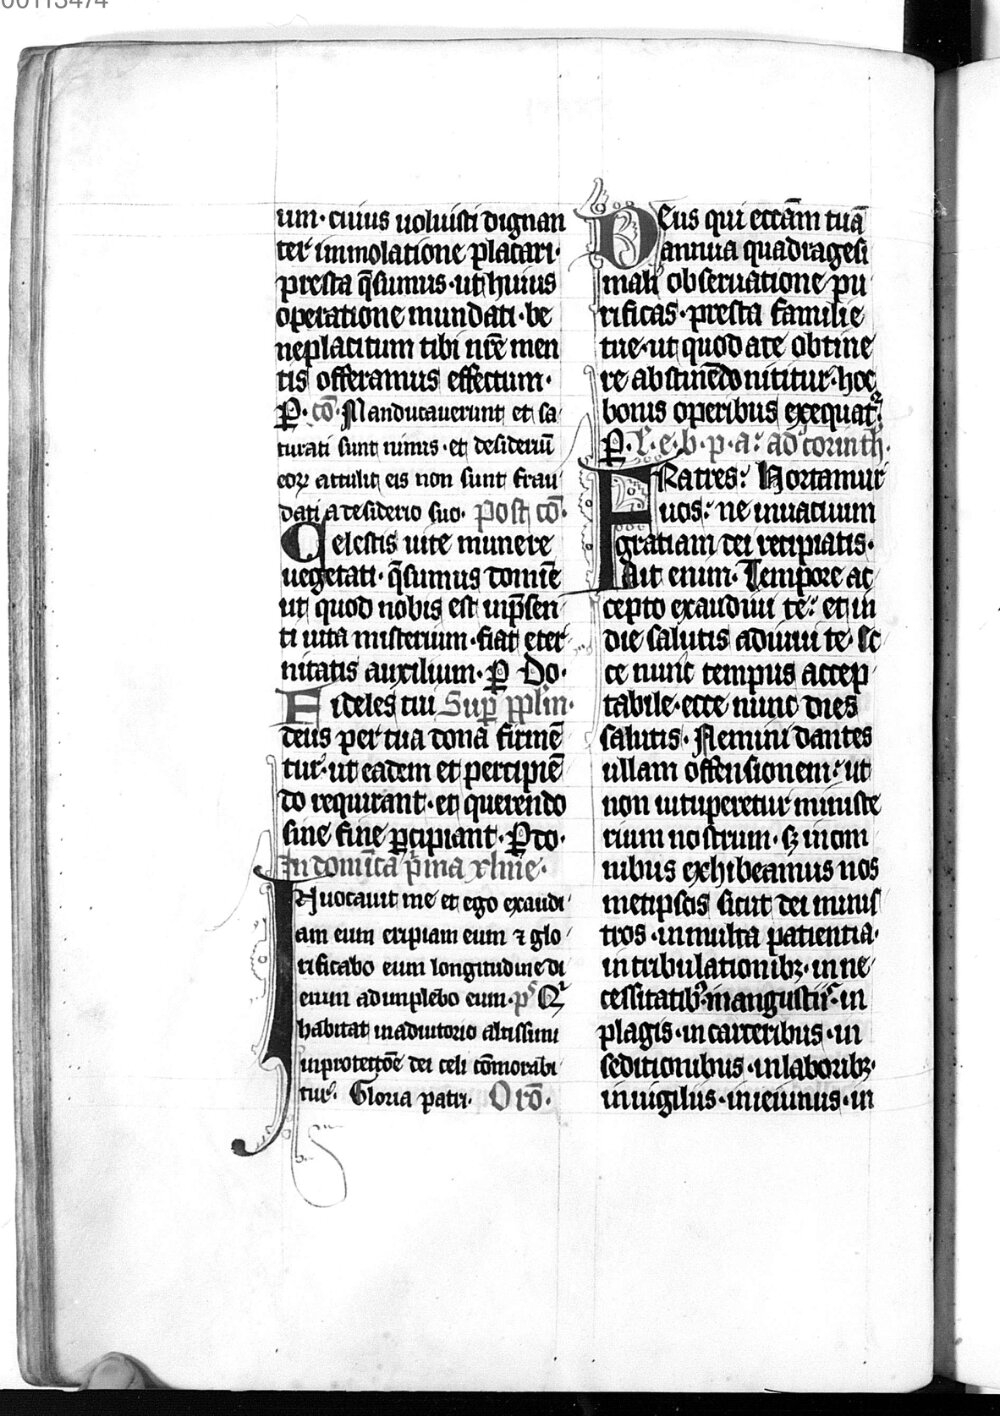 00113474
um· cuius uoluisti dignan
ter immolatione placari·
presta q̄sumus· ut huius
operatione mundati· be
neplacitum tibi nr̄e men
tis offeramus effectum·
P· cō· Manducauerunt et sa
turati sunt nimis· et desideriū
eoꝝ attulit eis non sunt frau
dati a desiderio suo· Post cō·
Celestis uite munere
uegetati· q̄sumus domīe
ut quod nobis est in p̄sen
ti uita misterium· fiat eter
nitatis auxilium· ꝑ Do·
Fideles tui Suꝑ pplm·
deus per tua dona firmē
tur· ut eadem et percipiē
do requirant· et querendo
sine fine ꝑcipiant· ꝑ do·
In domīca p̄ma xlme·
Inuocauit me et ego exaudi
am eum eripiam eum ⁊ glo
rificabo eum longitudine di
erum adimplebo eum· ps Qi
habitat in adiutorio altissimi
in protectōe dei celi cōmorabi
tur· Gloria patri· Orō·
Deus qui ecc̄am tuā
annua quadragesi
mali obseruatione pu
rificas· presta familie
tue· ut quod a te obtine
re abstinēdo nititur· hoc
bonis operibus exequat᷑·
P· l· e· b· p· a· ad corinth·
FRatres: Hortamur
uos: ne in uacuum
gratiam dei recipiatis·
Ait enim· Tempore ac
cepto exaudiui te: et in
die salutis adiuui te· Ec
ce nunc tempus accep
tabile· ecce nunc dies
salutis· Nemini dantes
ullam offensionem: ut
non uituperetur ministe
rium nostrum· sꝫ in om
nibus exhibeamus nos
metipsos sicut dei minis
tros· in multa patientia·
in tribulationibꝫ· in ne
cessitatibꝫ· in angustiis· in
plagis· in carceribus· in
seditionibus· in laboribꝫ·
in uigiliis· in ieiuniis· in